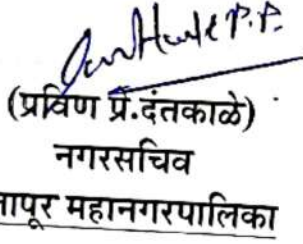 (प्रविण प्रे.दंतकाळे)
नगरसचिव
महानगरपालिका